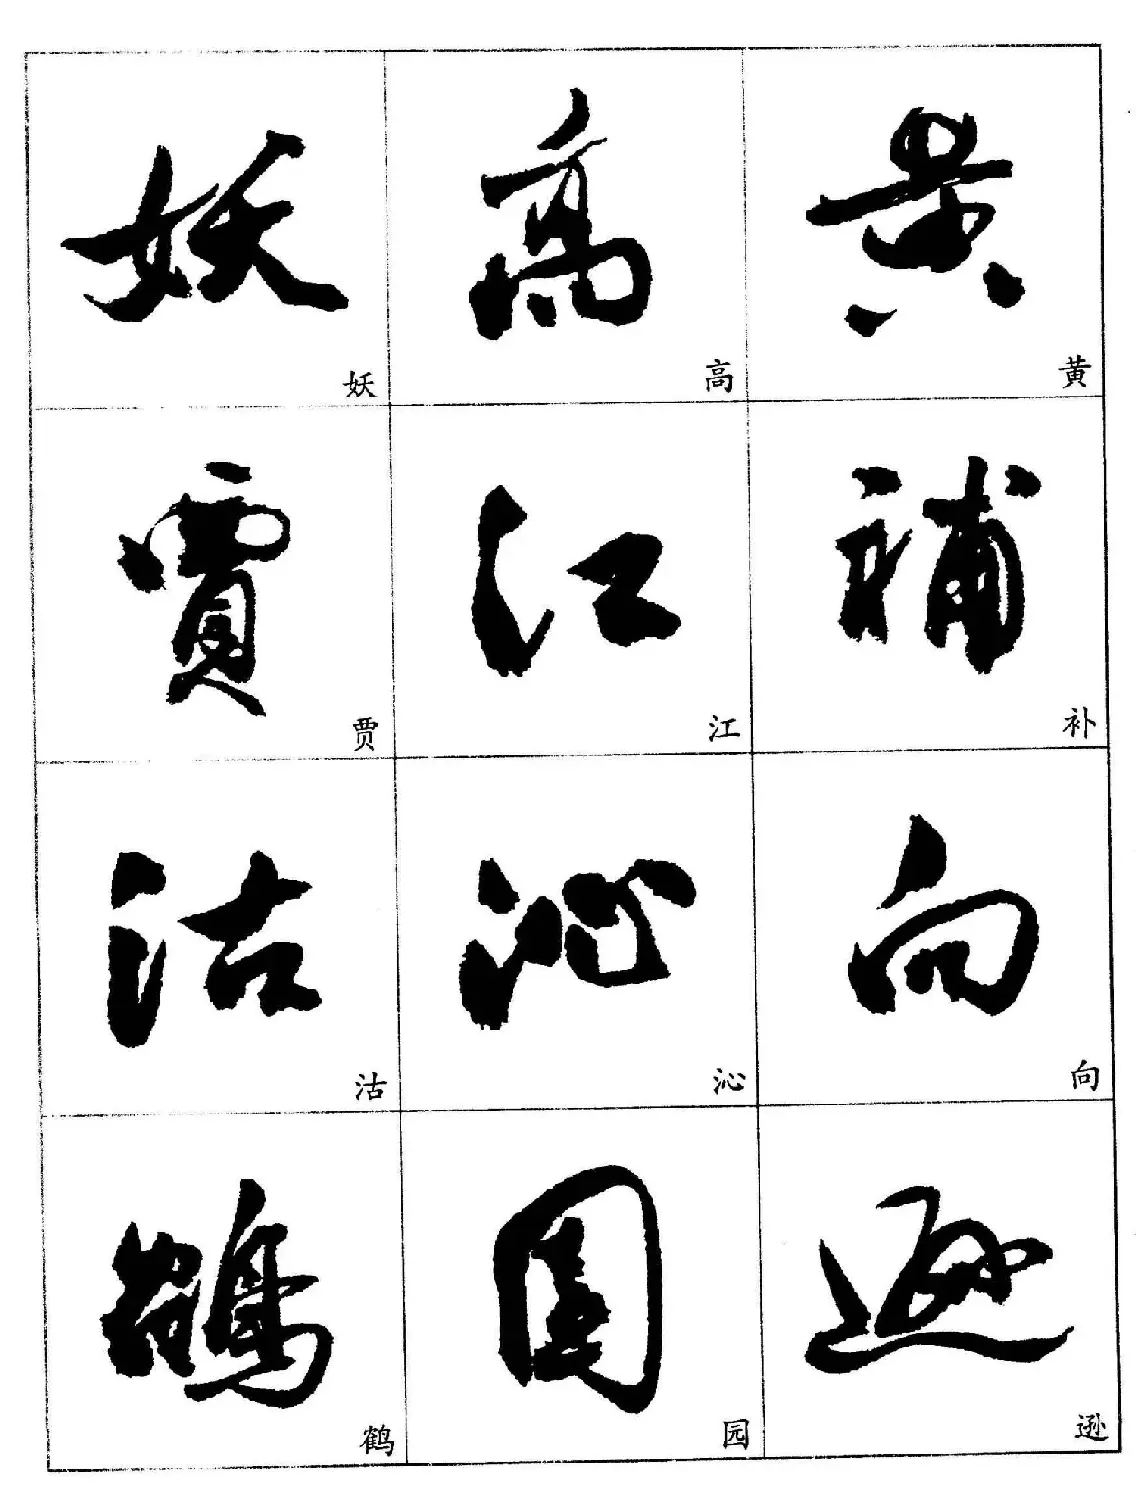 妖 高 黄
妖 高 黄
賈 江 補
贾 江 补
沽 沁 向
沽 沁 向
鶴 園 遜
鹤 园 逊